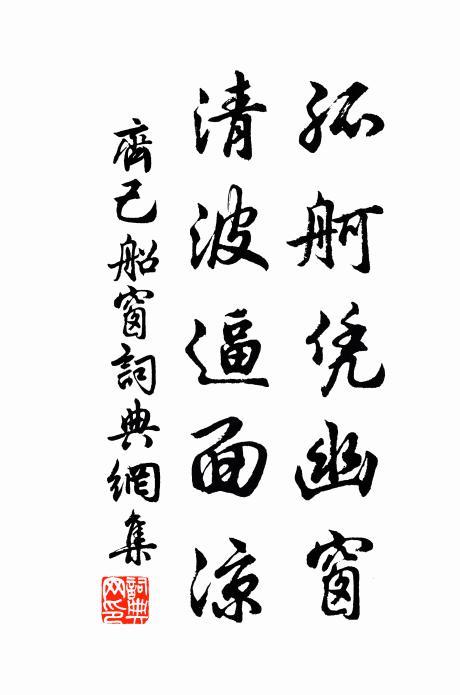 孤舸凭幽窗
清波逼面凉
齊己船窗詞典網集
詞典网印